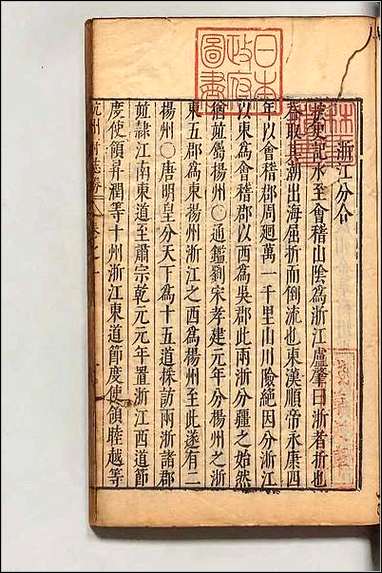 浙江分合
史記水至會稽山陰爲浙江盧肇曰浙者折也
取其潮出海屈折而倒流也東漢順帝永康四
年以會稽郡周廻萬一千里山川險絶因分浙江
以東爲會稽郡以西爲吳郡此兩浙分疆之始然
猶並蜀揚州〇通鑑劉宋孝建元年分楊州之浙
東五郡爲東揚州浙江之西爲楊州至此遂有二
楊州〇唐明皇分天下爲十五道採訪兩浙諸郡
並隷江南東道至肅宗乾元元年置浙江西道節
度使領昇潤等十州浙江東道節度使領睦越等
杭州府志
日本
政府
圖書